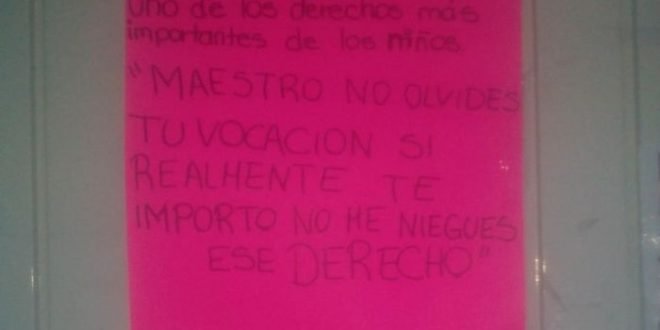 uno de los derechos más
importantes de los niños.
"MAESTRO NO OLVIDES
TU VOCACION SI
REALHENTE TE
IMPORTO NO HE NIEGUES
ESE DERECHO"